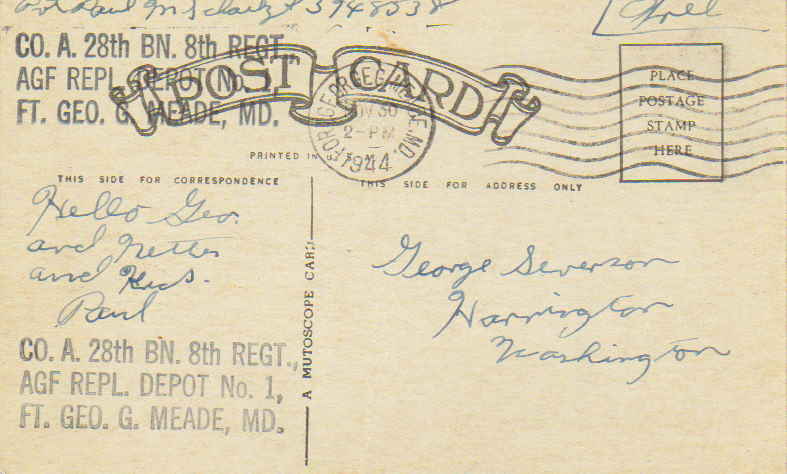 Pvt Paul M 3948538
Free
CO. A. 28th BN. 8th REGT.,
AGF REPL. DEPOT No. 1,
FT. GEO. G. MEADE, MD.
POST CARD
FORT GEORGE G. MEADE, MD.
30
2-PM
1944
PLACE
POSTAGE
STAMP
HERE
PRINTED IN
THIS SIDE FOR CORRESPONDENCE
THIS SIDE FOR ADDRESS ONLY
Hello Geo.
and Nettie
and Kids.
Paul
A MUTOSCOPE CARD
George Severson
Harrington
Washington
CO. A. 28th BN. 8th REGT.,
AGF REPL. DEPOT No. 1,
FT. GEO. G. MEADE, MD.